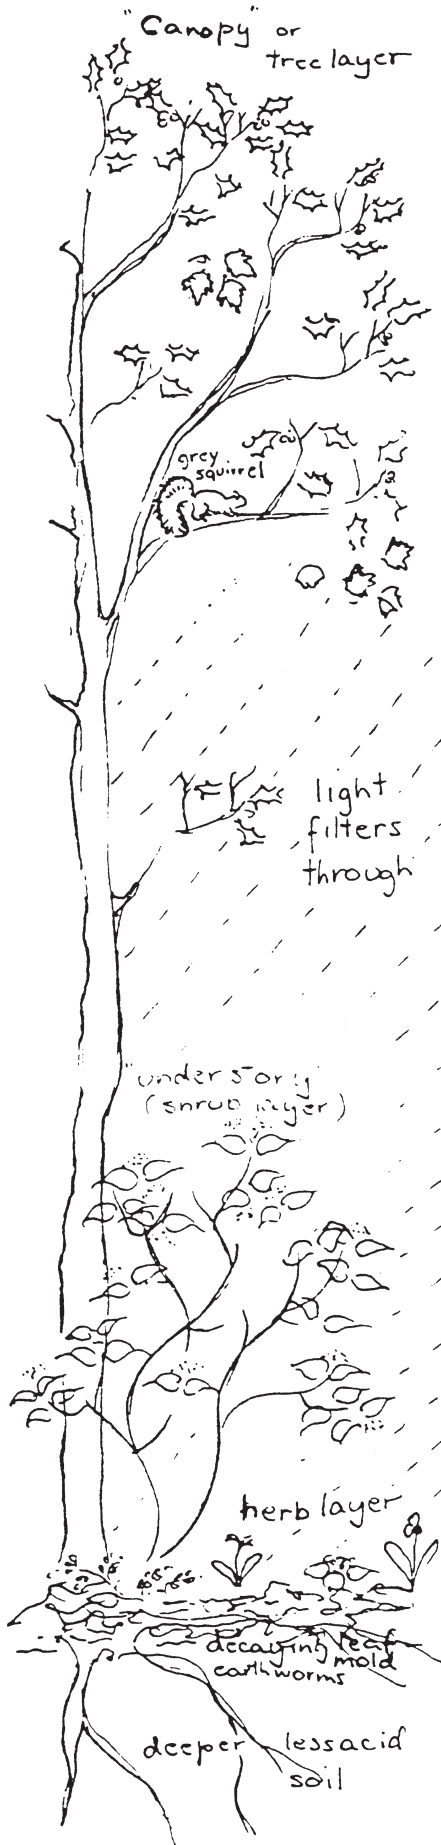 "Canopy" or
tree layer
grey
squirrel
light
filters
through
"understory"
(shrub layer)
herb layer
decaying leaf
mold
earthworms
deeper less acid
soil